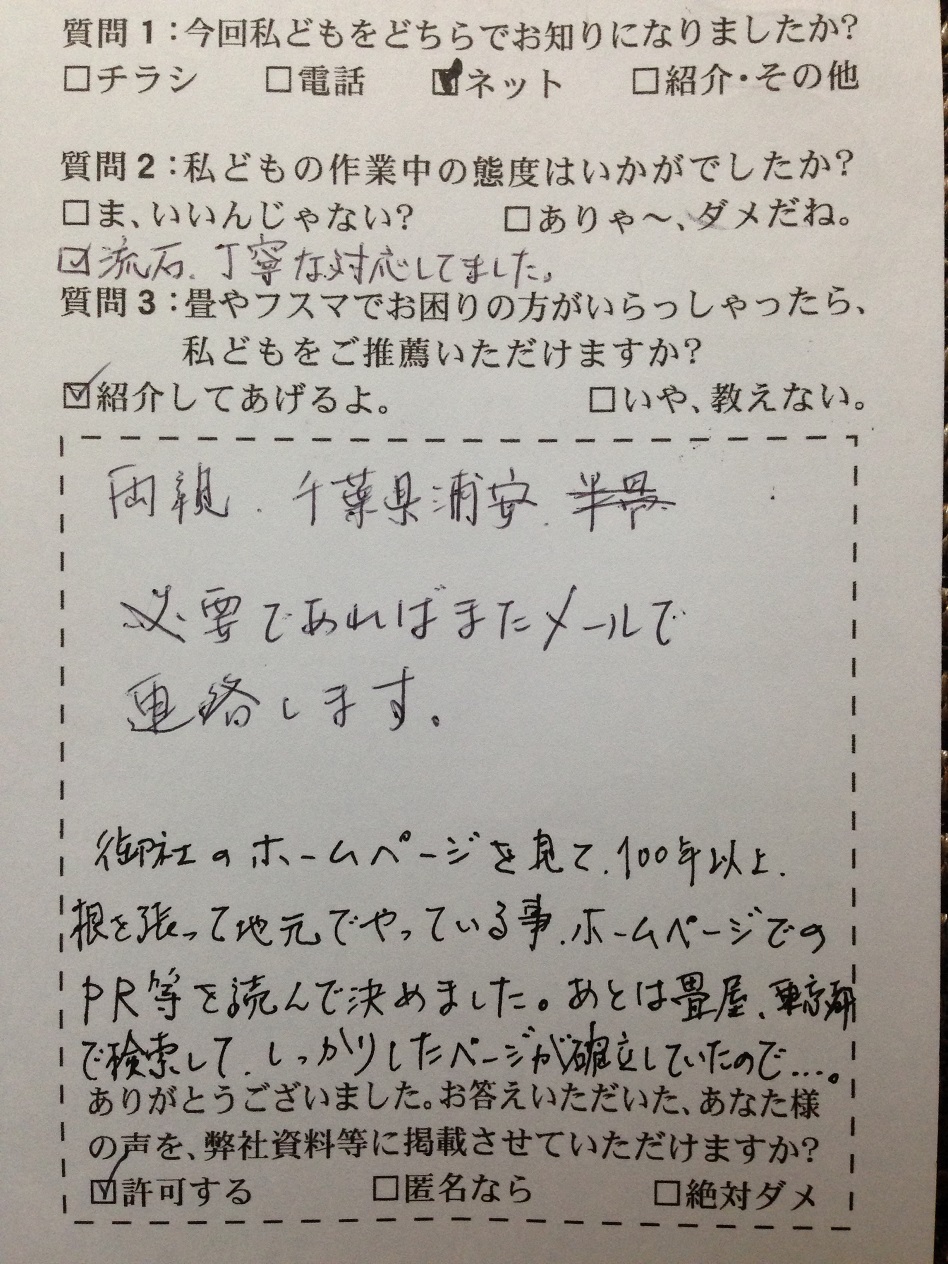 質問1:今回私どもをどちらでお知りになりましたか?
□チラシ □電話 ☑ネット □紹介・その他
質問2:私どもの作業中の態度はいかがでしたか?
□ま、いいんじゃない? □ありゃ〜、ダメだね。
☑流石、丁寧な対応してました。
質問3:畳やフスマでお困りの方がいらっしゃったら、
私どもをご推薦いただけますか?
☑紹介してあげるよ。 □いや、教えない。
両親、千葉県浦安、
必要であればまたメールで
連絡します。
御社のホームページを見て、100年以上、
根を張って地元でやっている事、ホームページでの
PR等を読んで決めました。あとは畳屋、東京都
で検索して、しっかりしたページが確立していたので…。
ありがとうございました。お答えいただいた、あなた様
の声を、弊社資料等に掲載させていただけますか?
☑許可する □匿名なら □絶対ダメ